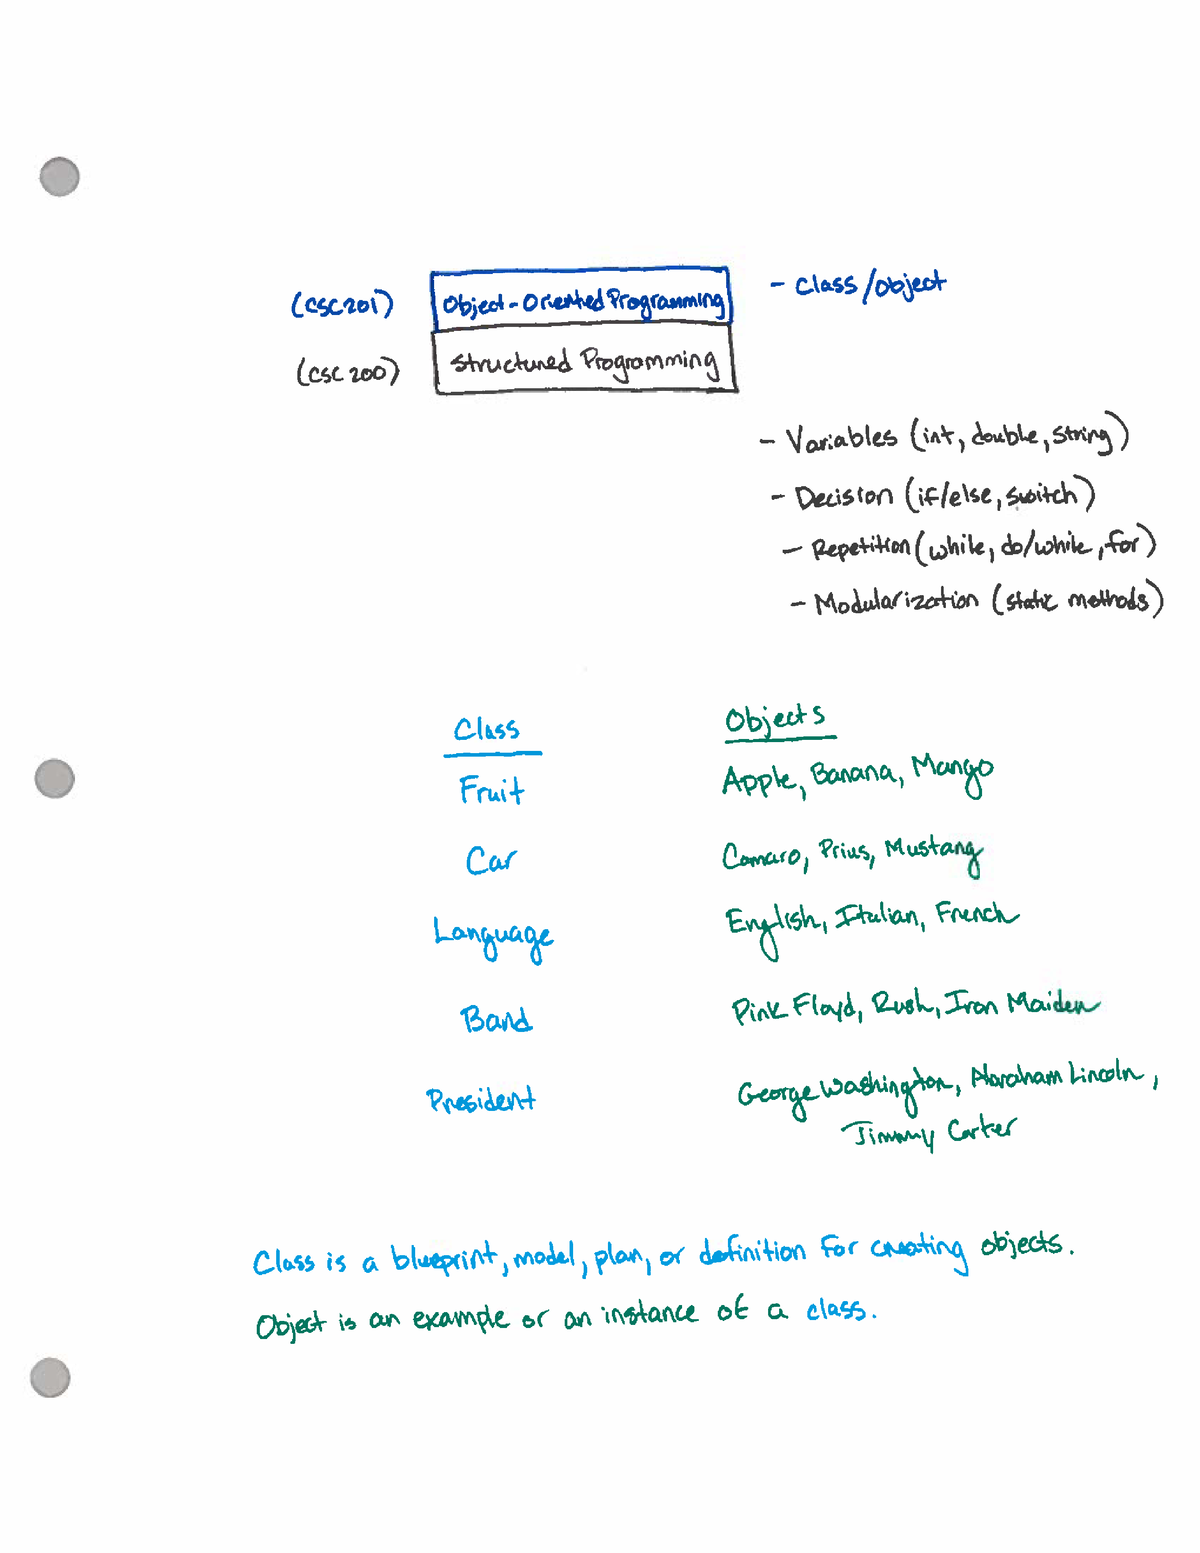 (CSC201) Object-Oriented Programming - Class/Object
(CSC 200) Structured Programming
- Variables (int, double, String)
- Decision (if/else, switch)
- Repetition (while, do/while, for)
- Modularization (static methods)
Class Objects
Fruit Apple, Banana, Mango
Car Camaro, Prius, Mustang
Language English, Italian, French
Band Pink Floyd, Rush, Iron Maiden
President George Washington, Abraham Lincoln,
Jimmy Carter
Class is a blueprint, model, plan, or definition for creating objects.
Object is an example or an instance of a class.